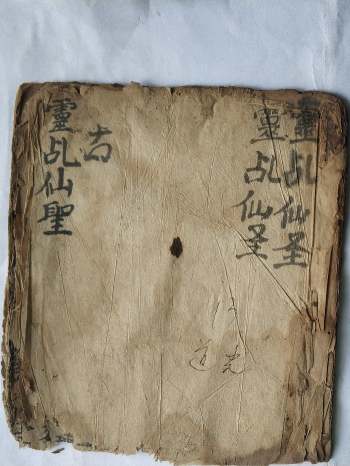 靈乩仙圣
靈乩仙圣
古
靈乩仙聖
道光